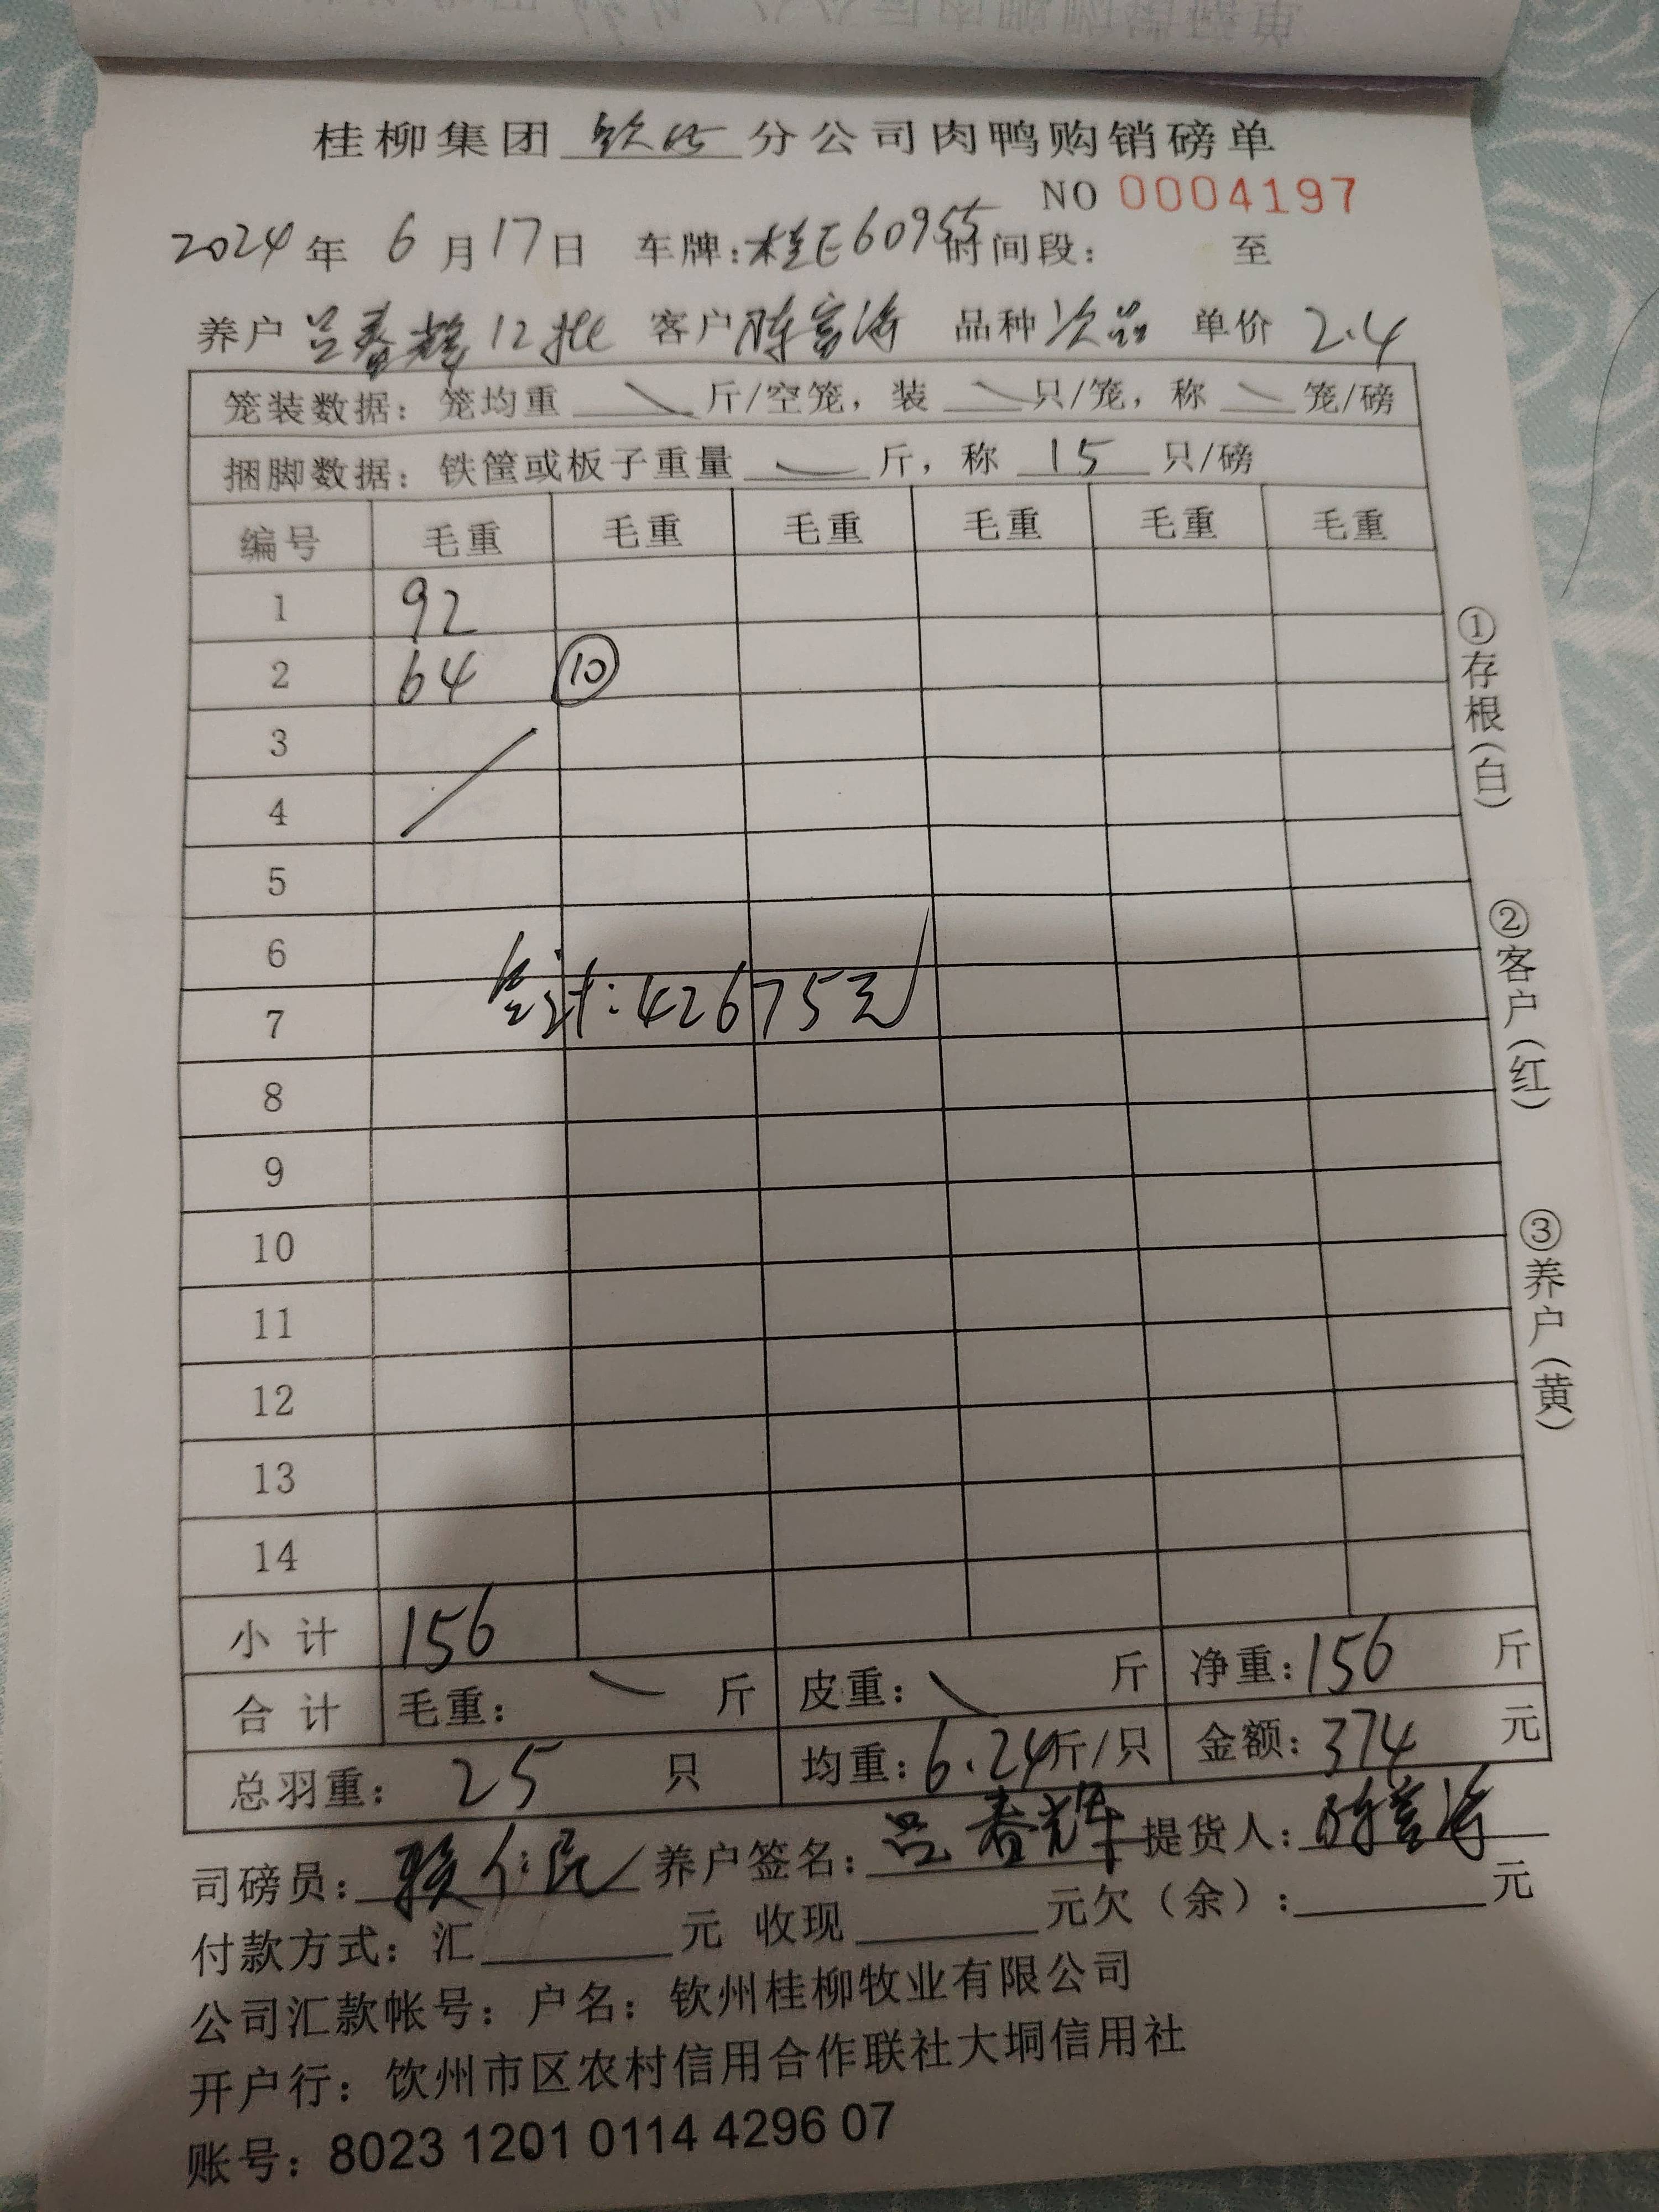 桂柳集团 钦州 分公司肉鸭购销磅单
NO 0004197
2024 年 6 月 17 日 车牌：桂E60955 时间段： 至
养户 吕春辉 12批 客户 陈富海 品种 次品 单价 2.4
笼装数据：笼均重 斤/空笼，装 只/笼，称 笼/磅
捆脚数据：铁筐或板子重量 斤，称 15 只/磅
编号 毛重 毛重 毛重 毛重 毛重 毛重
1 92
2 64 ⑩
3
4
5
6
7
总计：42675元
8
9
10
11
12
13
14
小计 156
合计 毛重： 斤 皮重： 斤 净重：156 斤
总羽重： 25 只 均重：6.24斤/只 金额：374 元
司磅员：赖仁民 养户签名：吕春辉 提货人：陈富海
付款方式：汇 元 收现 元欠（余）： 元
公司汇款帐号：户名：钦州桂柳牧业有限公司
开户行：钦州市区农村信用合作联社大垌信用社
账号：8023 1201 0114 4296 07
①存根（白）
②客户（红）
③养户（黄）